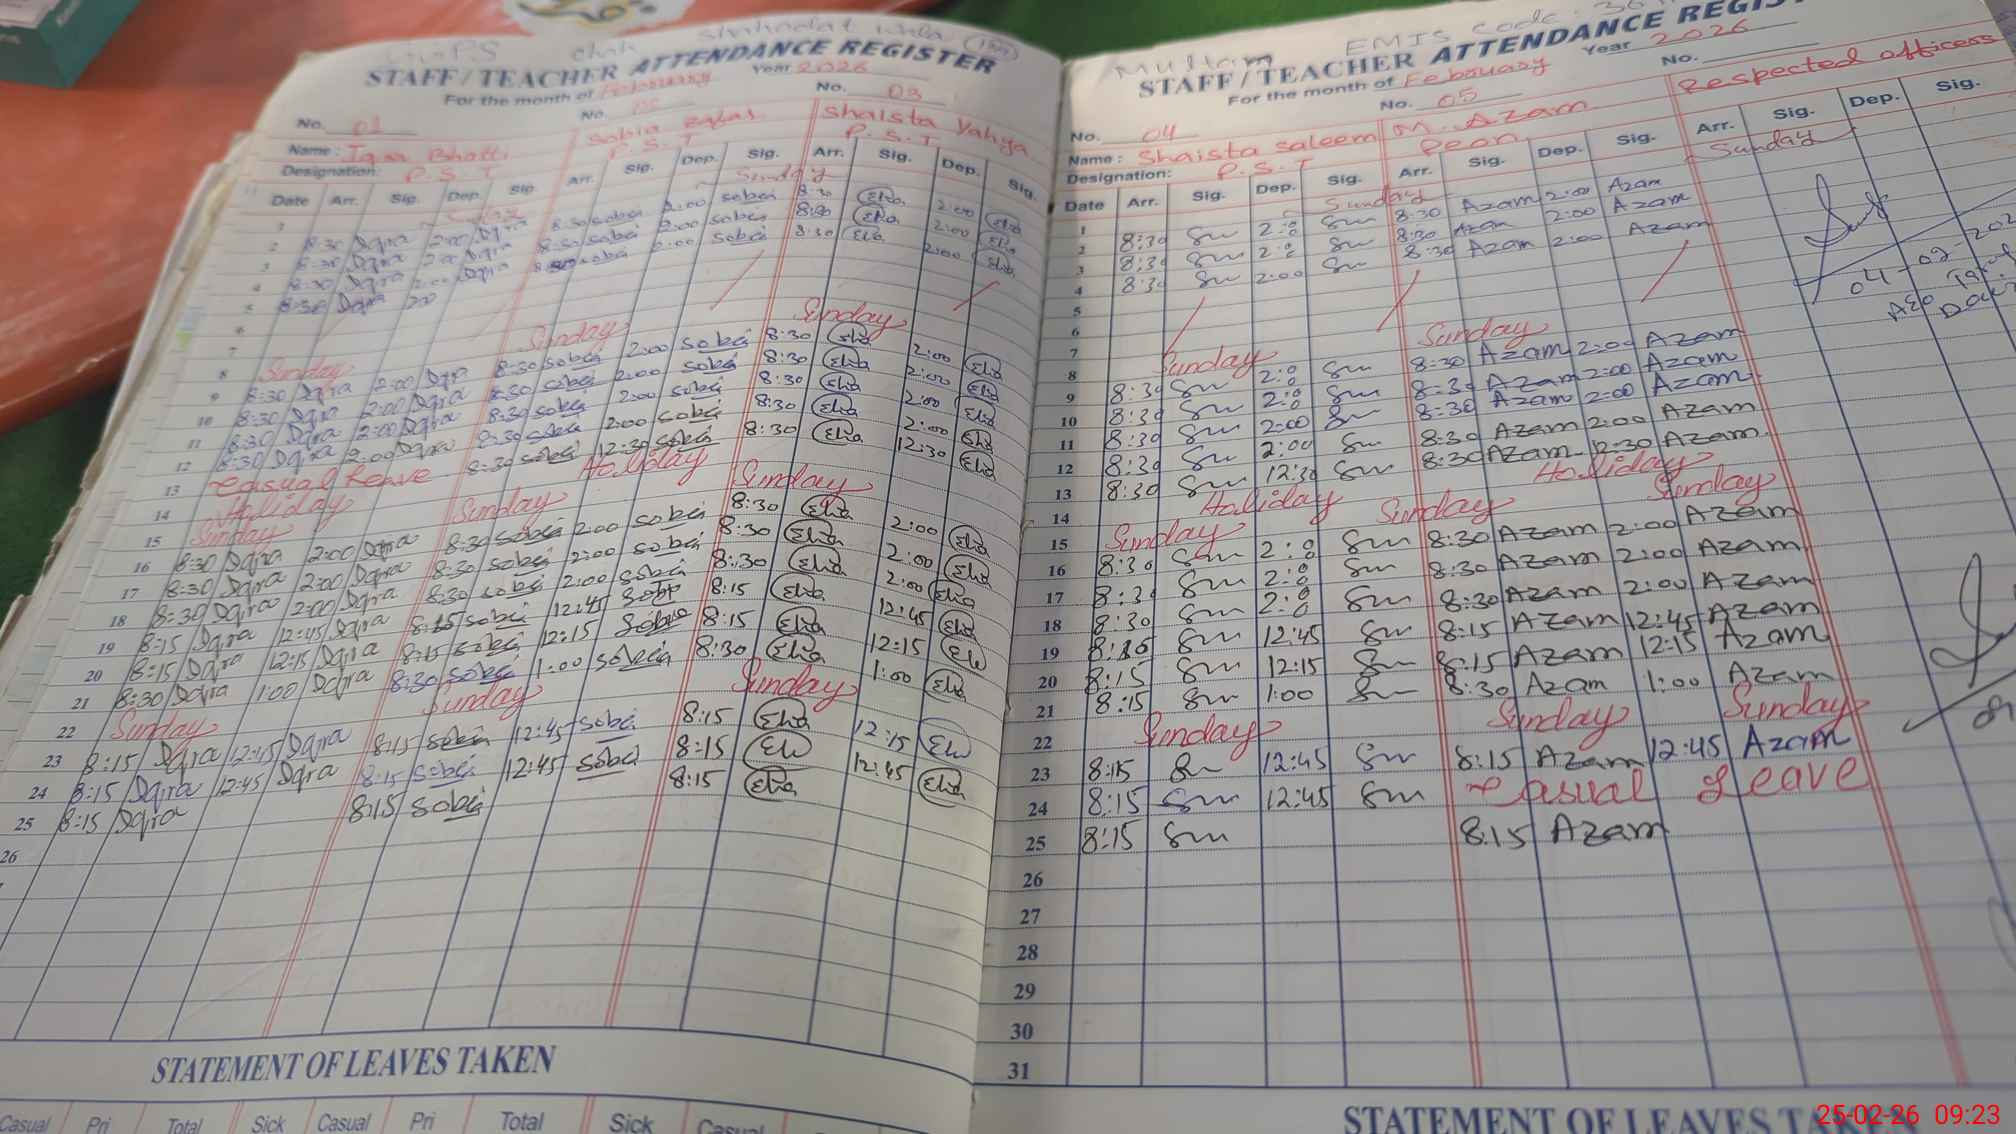 chah Shahadat wala
STAFF/TEACHER ATTENDANCE REGISTER
For the month of February Year 2026
No. 01 No. 02 No. 03
Name: Iqra Bhatti Sobia Shaista Yahya
Designation: P.S.T P.S.T P.S.T
Date Arr. Sig. Dep. Sig. Arr. Sig. Dep. Sig. Arr. Sig. Dep. Sig.
1 Sunday
2 8:30 Iqra 2:00 Iqra 8:30 sobia 2:00 sobia 8:30 2:00
3 8:30 Iqra 2:00 Iqra 8:30 sobia 2:00 sobia 8:30 2:00
4 8:30 Iqra 2:00 Iqra sobia 2:00 sobia 8:30 2:00
5 8:30 Iqra
6
7
8 Sunday Sunday Sunday
9 8:30 Iqra 2:00 Iqra 8:30 sobia 2:00 sobia 8:30 2:00
10 8:30 Iqra 2:00 Iqra 8:30 sobia 2:00 sobia 8:30 2:00
11 8:30 Iqra 2:00 Iqra 8:30 sobia 2:00 sobia 8:30 2:00
12 8:30 Iqra 2:00 Iqra 8:30 sobia 2:00 sobia 8:30 2:00
13 Casual Leave 8:30 sobia 12:30 sobia 8:30 12:30
14 Holiday Holiday
15 Sunday Sunday Sunday
16 8:30 Iqra 2:00 Iqra 8:30 sobia 2:00 sobia 8:30 2:00
17 8:30 Iqra 2:00 Iqra 8:30 sobia 2:00 sobia 8:30 2:00
18 8:30 Iqra 2:00 Iqra 8:30 sobia 2:00 sobia 8:30 2:00
19 8:15 Iqra 12:45 Iqra 8:15 sobia 12:45 sobia 8:15 12:45
20 8:15 Iqra 12:15 Iqra 8:15 sobia 12:15 sobia 8:15 12:15
21 8:30 Iqra 1:00 Iqra 8:30 sobia 1:00 sobia 8:30 1:00
22 Sunday Sunday Sunday
23 8:15 Iqra 12:45 Iqra 8:15 sobia 12:45 sobia 8:15 12:15
24 8:15 Iqra 12:45 Iqra 8:15 sobia 12:45 sobia 8:15 12:45
25 8:15 Iqra 8:15 sobia 8:15
26
STATEMENT OF LEAVES TAKEN
Casual Pri Total Sick Casual Pri Total Sick Casual
Multan EMIS Code
STAFF/TEACHER ATTENDANCE REGIS
For the month of February Year 2026
No. 04 No. 05 No.
Name: Shaista Saleem M. Azam Respected officers
Designation: P.S.T Peon
Date Arr. Sig. Dep. Sig. Arr. Sig. Dep. Sig. Arr. Sig. Dep. Sig.
1 Sunday Sunday
2 8:30 Sm 2:0 Sm 8:30 Azam 2:00 Azam
3 8:30 Sm 2:0 Sm 8:30 Azam 2:00 Azam
4 8:30 Sm 2:00 Sm 8:30 Azam 2:00 Azam
04-02-202
AEO
5
6
7
8 Sunday Sunday
9 8:30 Sm 2:0 Sm 8:30 Azam 2:00 Azam
10 8:30 Sm 2:0 Sm 8:30 Azam 2:00 Azam
11 8:30 Sm 2:00 Sm 8:30 Azam 2:00 Azam
12 8:30 Sm 2:00 Sm 8:30 Azam 2:00 Azam
13 8:30 Sm 12:30 Sm 8:30 Azam 12:30 Azam
14 Holiday Holiday
15 Sunday Sunday Sunday
16 8:30 Sm 2:0 Sm 8:30 Azam 2:00 Azam
17 8:30 Sm 2:0 Sm 8:30 Azam 2:00 Azam
18 8:30 Sm 2:0 Sm 8:30 Azam 2:00 Azam
19 8:15 Sm 12:45 Sm 8:15 Azam 12:45 Azam
20 8:15 Sm 12:15 Sm 8:15 Azam 12:15 Azam
21 8:15 Sm 1:00 Sm 8:30 Azam 1:00 Azam
22 Sunday Sunday Sunday
23 8:15 Sm 12:45 Sm 8:15 Azam 12:45 Azam
24 8:15 Sm 12:45 Sm Casual Leave
25 8:15 Sm 8:15 Azam
26
27
28
29
30
31
STATEMENT OF LEAVES TA
25-02-26 09:23